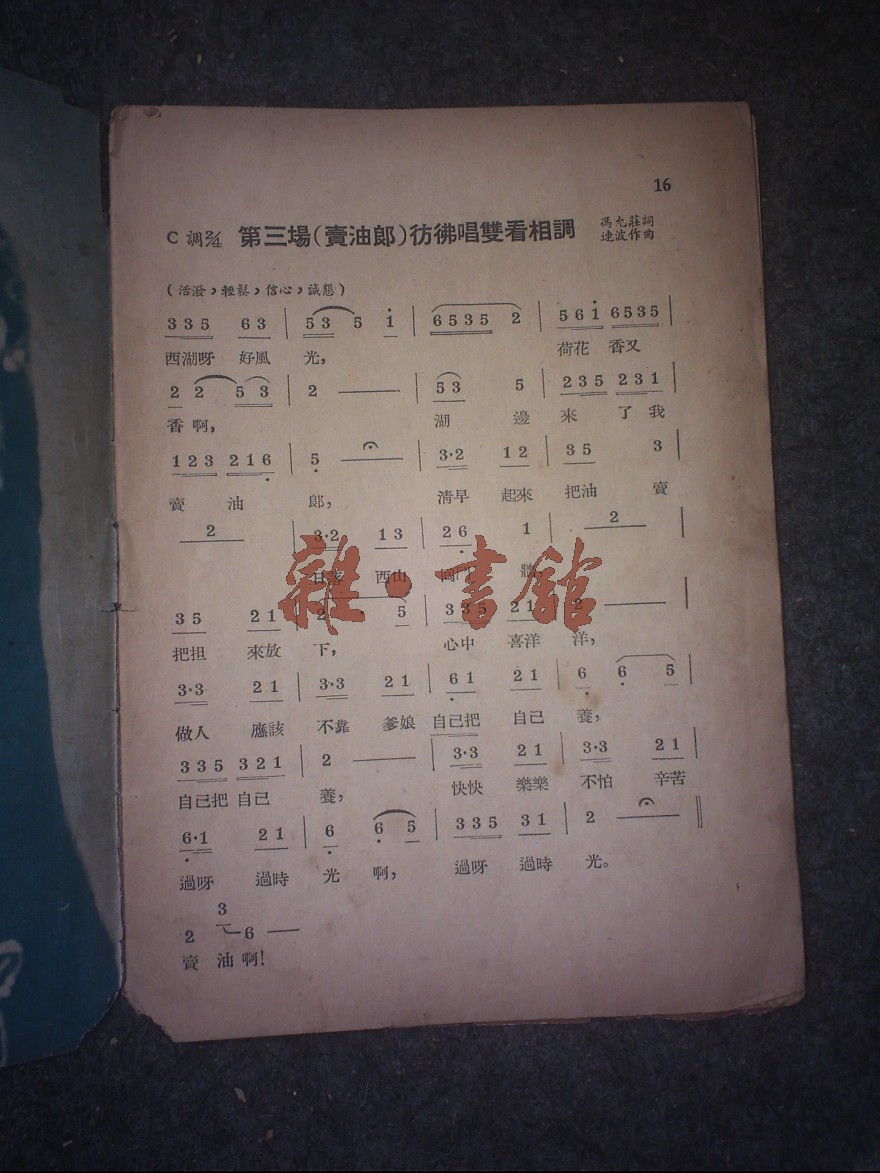 16
C 調 2/4 第三場(賣油郎)彷彿唱雙看相調
馮允莊詞
連波作曲
(活潑，輕鬆，信心，誠懇)
3 3 5 6 3 | 5 3 5 i | 6 5 3 5 2 | 5 6 i 6 5 3 5 |
西湖呀 好風 光， 荷花 香又
2 2 5 3 | 2 — | 5 3 5 | 2 3 5 2 3 1 |
香 啊， 湖 邊 來 了 我
1 2 3 2 1 6 | 5 — | 3·2 1 2 | 3 5 3 |
賣 油 郎， 清早 起來 把油 賣
2 | 3·2 1 3 | 2 6 1 | 2 |
日落 西山
3 5 2 1 | 2 5 | 3 3 5 2 1 | 2 — |
把担 來放 下， 心中 喜洋 洋，
3·3 2 1 | 3·3 2 1 | 6 1 2 1 | 6 6 5 |
做人 應該 不靠 爹娘 自己把 自己 養，
3 3 5 3 2 1 | 2 — | 3·3 2 1 | 3·3 2 1 |
自己把 自己 養， 快快 樂樂 不怕 辛苦
6·1 2 1 | 6 6 5 | 3 3 5 3 1 | 2 — ‖
過呀 過時 光 啊， 過呀 過時 光。
2 3 6 —
賣 油 啊！
雜·書館